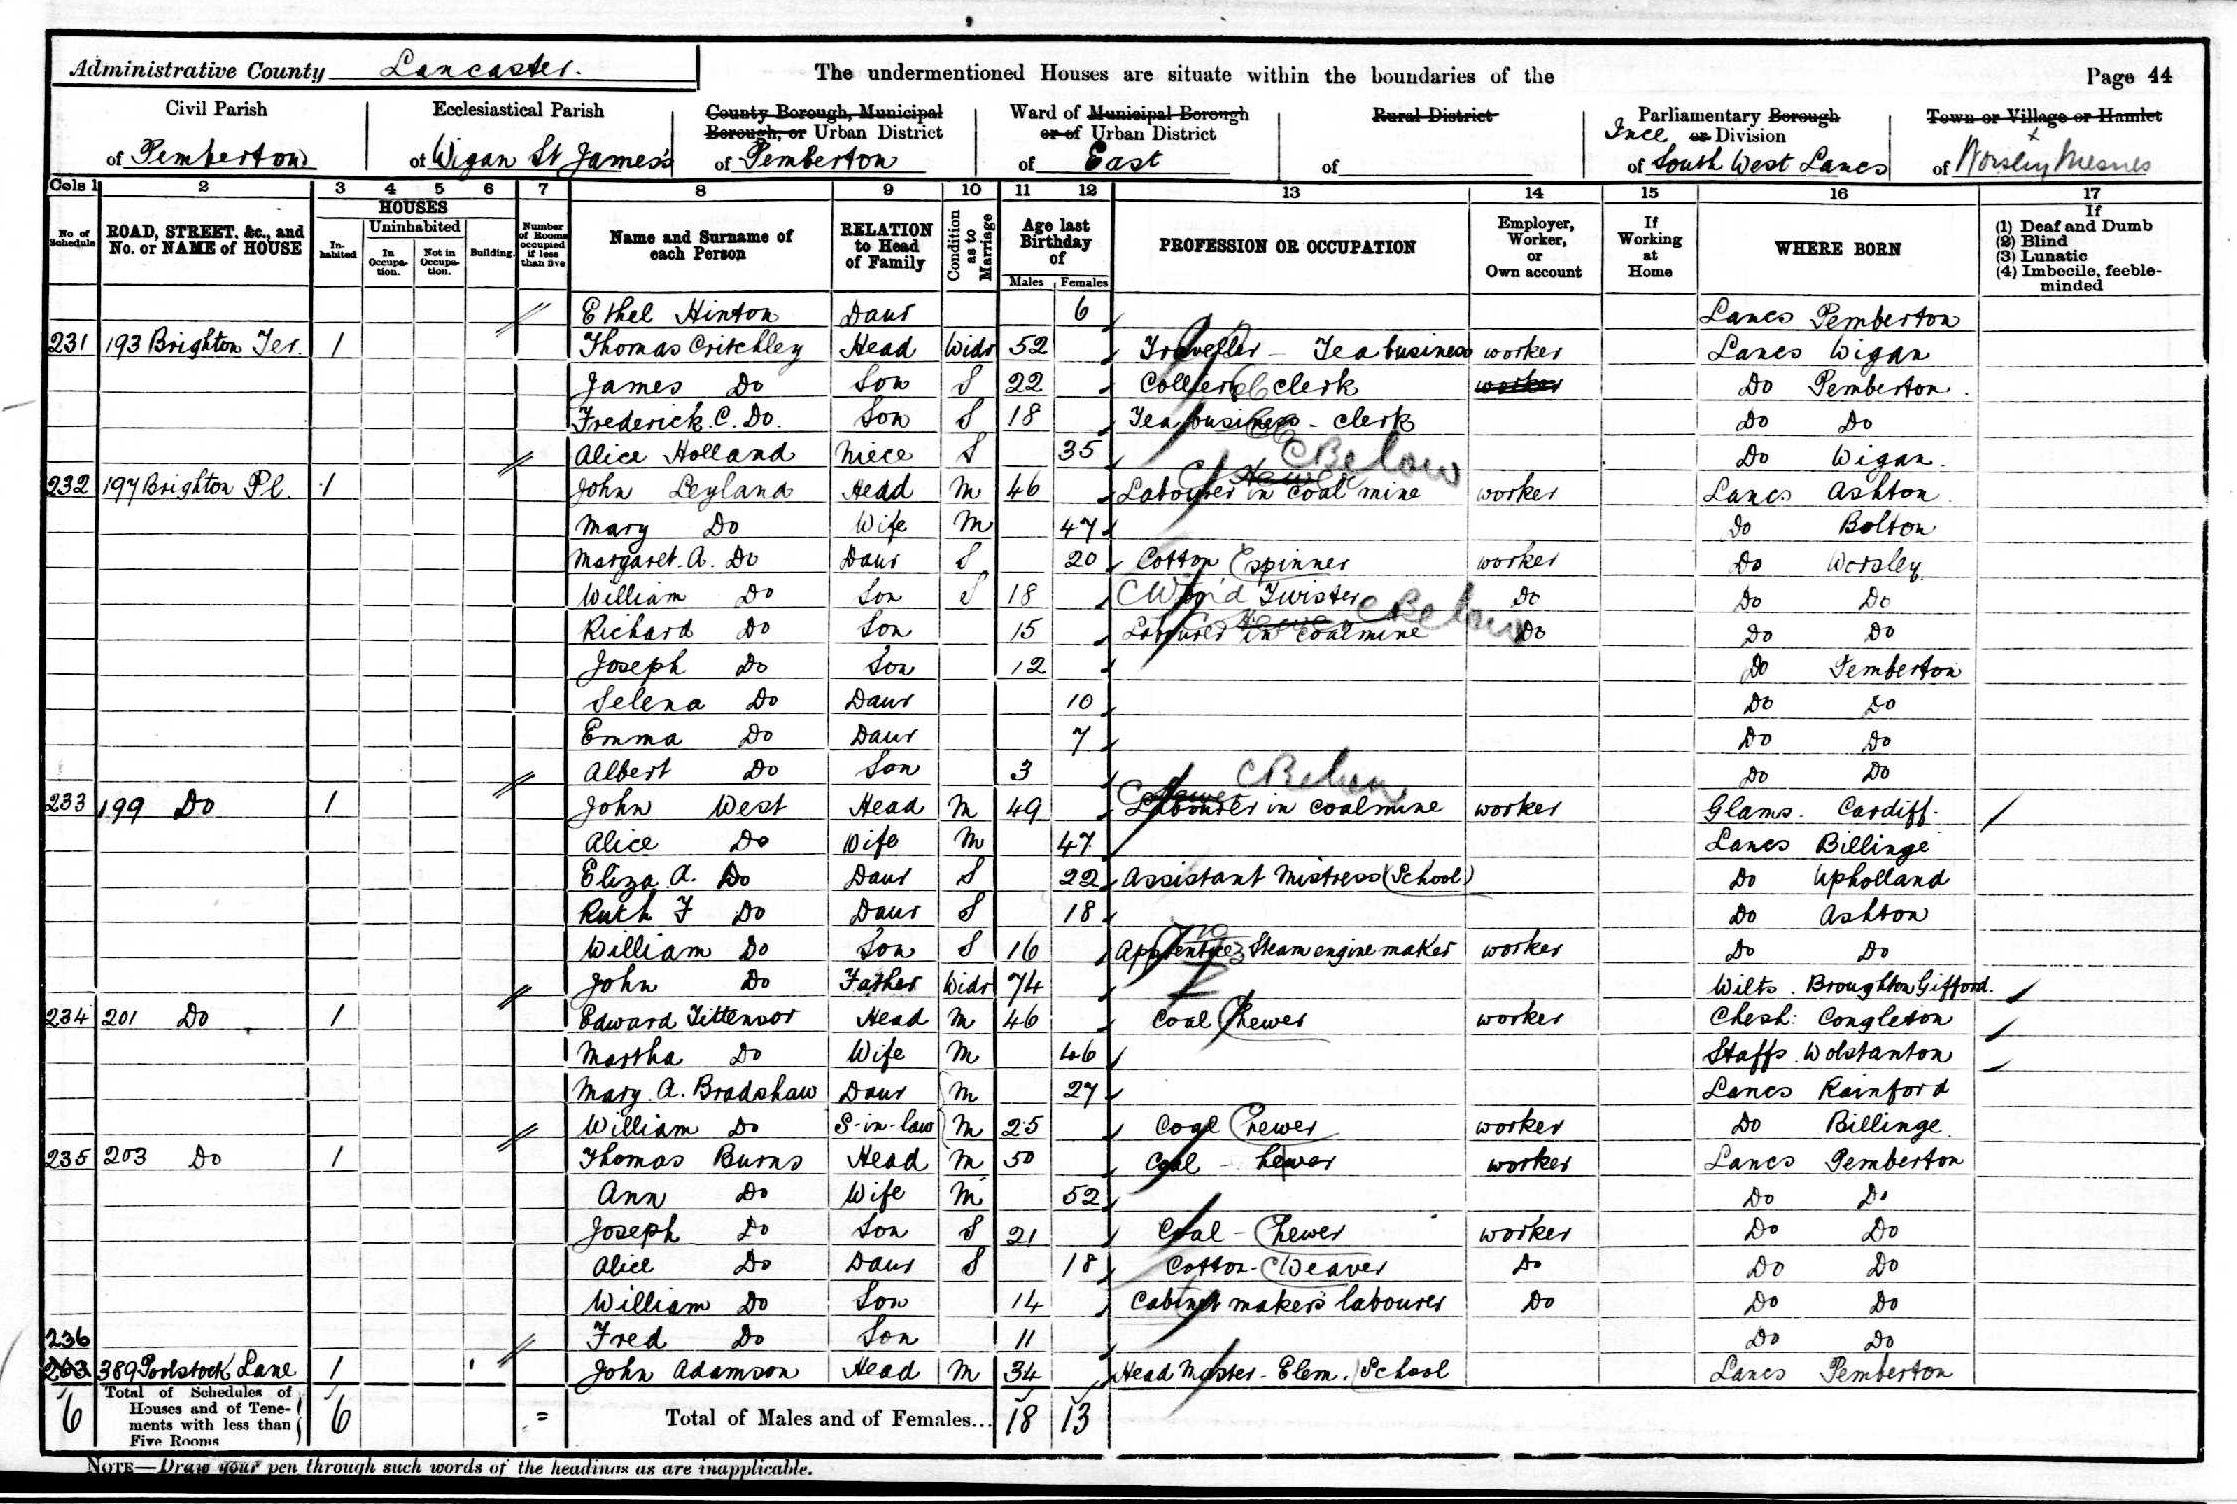 Administrative County Lancaster.
The undermentioned Houses are situate within the boundaries of the
Page 44
Civil Parish of Pemberton
Ecclesiastical Parish of Wigan St James's
County Borough, Municipal Borough, or Urban District of Pemberton
Ward of Municipal Borough or of Urban District of East
Rural District of
Parliamentary Borough or Division of Ince South West Lancs
Town or Village or Hamlet of Worsley Mesnes
Cols 1 2 3 4 5 6 7 8 9 10 11 12 13 14 15 16 17
No. of Schedule
ROAD, STREET, &c., and No. or NAME of HOUSE
HOUSES
Inhabited
Uninhabited
In Occupation.
Not in Occupation.
Building.
Number of Rooms occupied if less than five
Name and Surname of each Person
RELATION to Head of Family
Condition as to Marriage
Age last Birthday of
Males Females
PROFESSION OR OCCUPATION
Employer, Worker, or Own account
If Working at Home
WHERE BORN
If
(1) Deaf and Dumb
(2) Blind
(3) Lunatic
(4) Imbecile, feeble-minded
Ethel Hinton Daur 6 Lancs Pemberton
231 193 Brighton Ter. 1 Thomas Critchley Head Widr 52 Traveller - Tea business worker Lancs Wigan
James Do Son S 22 Colliery clerk worker Do Pemberton.
Frederick. C. Do. Son S 18 Tea business - clerk Do Do
Alice Holland Niece S 35 Do Wigan.
232 197 Brighton Pl. 1 John Leyland Head M 46 Labourer in coal mine Below worker Lancs Ashton
Mary Do Wife M 47 Do Bolton
Margaret. A. Do Daur S 20 Cotton spinner worker Do Worsley
William Do Son S 18 Twister Do Do Do
Richard Do Son 15 Labourer in coalmine Below Do Do Do
Joseph Do Son 12 Do Pemberton
Selena Do Daur 10 Do Do
Emma Do Daur 7 Do Do
Albert Do Son 3 Do Do
233 199 Do 1 John West Head M 49 Labourer in coalmine Below worker Glams. Cardiff.
Alice Do Wife M 47 Lancs Billinge
Eliza A. Do Daur S 22 Assistant Mistress (School) Do Upholland
Ruth F Do Daur S 18 Do Ashton
William Do Son S 16 Apprentice Steam engine maker worker Do Do
John Do Father Widr 74 Wilts. Broughton Gifford.
234 201 Do 1 Edward Tittensor Head M 46 Coal hewer worker Chesh: Congleton
Martha Do Wife M 46 Staffs. Wolstanton
Mary. A. Bradshaw Daur M 27 Lancs Rainford
William Do S-in-law M 25 Coal hewer worker Do Billinge.
235 203 Do 1 Thomas Burns Head M 50 Coal - hewer worker Lancs Pemberton
Ann Do Wife M 52 Do Do
Joseph Do Son S 21 Coal - hewer worker Do Do
Alice Do Daur S 18 Cotton - Weaver Do Do Do
William Do Son 14 Cabinet makers labourer Do Do Do
236 Fred Do Son 11 Do Do
203 389 Poolstock Lane 1 John Adamson Head M 34 Head Master - Elem. School Lancs Pemberton
6 Total of Schedules of Houses and of Tenements with less than Five Rooms 6 = Total of Males and of Females... 18 13
NOTE—Draw your pen through such words of the headings as are inapplicable.